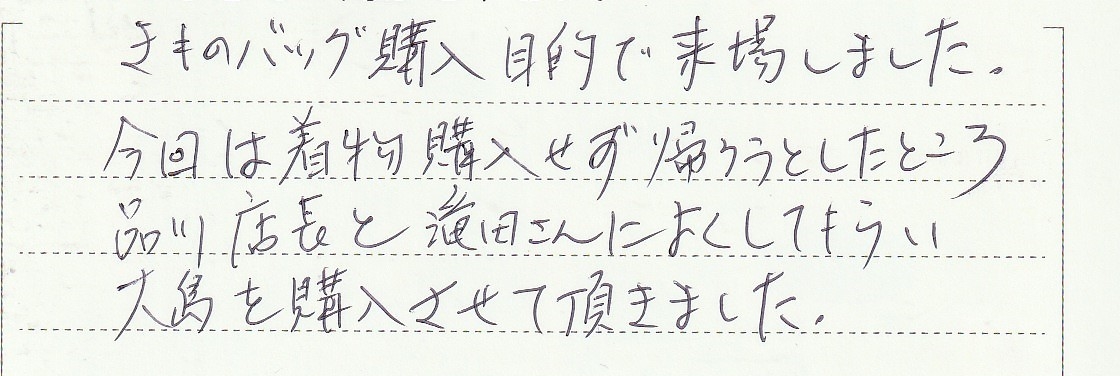 きものバッグ購入目的で来場しました。
今回は着物購入せず帰ろうとしたところ
品川店長と蓮田さんによくしてもらい
大島を購入させて頂きました。